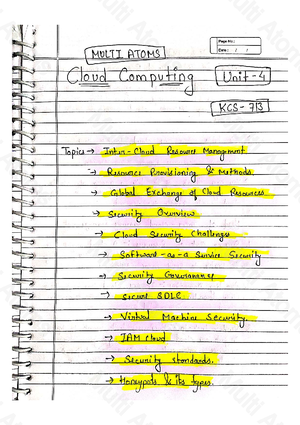 Page No.:
Date: / /
MULTI ATOMS
Cloud Computing Unit-4
KCS-713
Topics → Inter-Cloud Resource Management
→ Resource Provisioning & Methods.
→ Global Exchange of Cloud Resources
→ Security Overview
→ Cloud Security Challenges
→ Software-as-a Service Security
→ Security Governance
→ secure SDLC
→ Virtual Machine Security.
→ IAM cloud
→ Security standards.
→ Honeypots & its types.